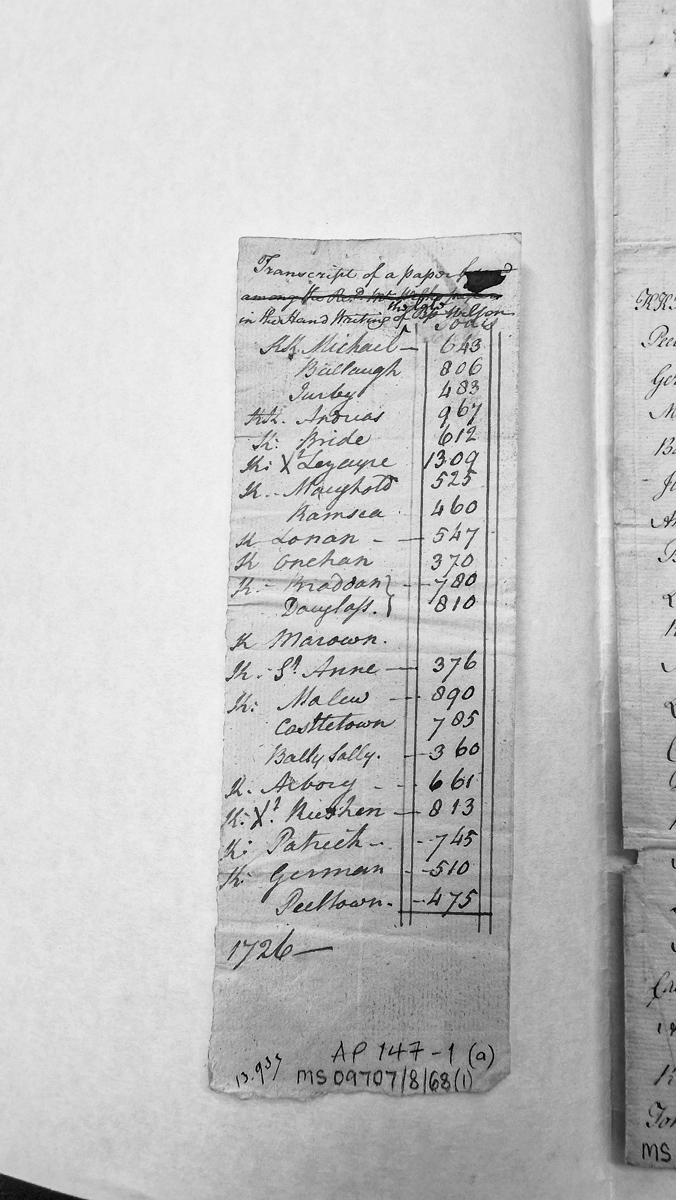 Transcript of a paper
among the Revd
the late
in the Hand Writing of Bp Wilson
Souls
KK Michael — 643
Ballaugh 806
Jurby 483
KK. Andreas 967
K: Bride 612
K: Xt Lezayre 1309
K. - Maughold 525
Ramsea 460
K Lonan - — 547
K Onchan 370
K: - Braddan } — 780
Douglass. } 810
K Marown.
K. - St. Anne — 376
K: Malew — 890
Castletown 785
Bally Sally. — 360
K. Arbory - - 661
K: Xt. Rushen — 813
K: Patrick - . - 745
K: German - - 510
Peeltown. - - 475
1726 —
13.937
AP 147-1 (a)
MS 09707/8/68(1)
MS